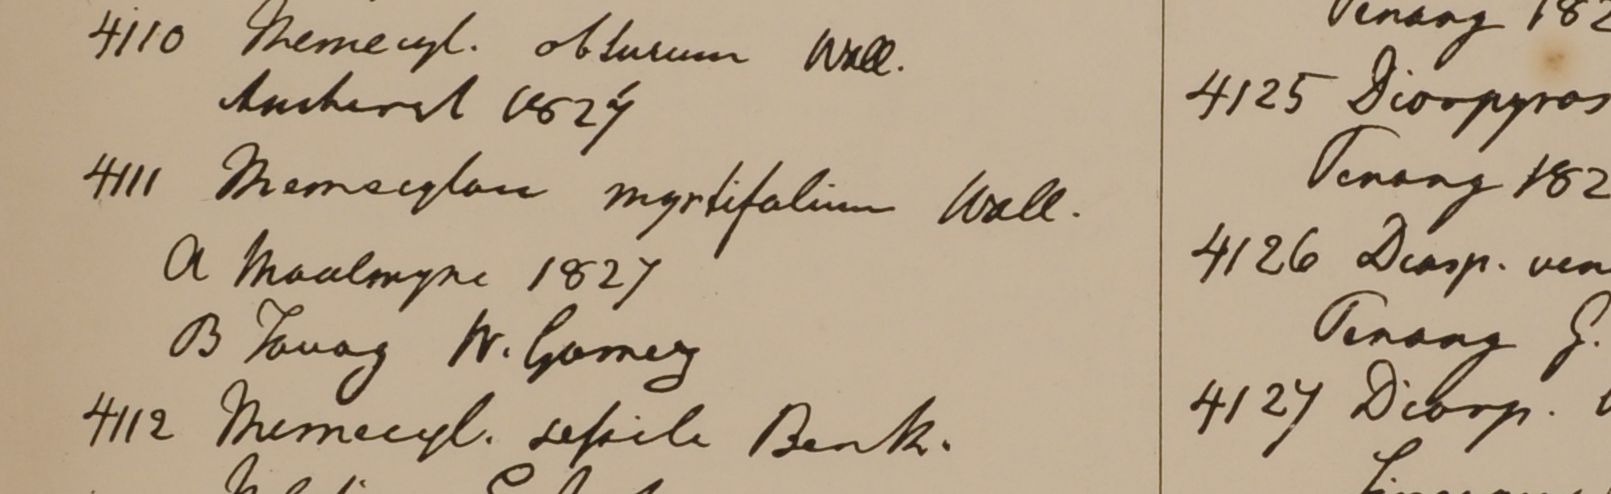 4110 Memecyl. obtusum Wall.
Amherst 1827
4111 Memecylon myrtifolium Wall.
A Moalmyne 1827
B Tavoy W. Gomez
4112 Memecyl. sessile Benth.
Penang 182
4125 Diospyros
Penang 182
4126 Diosp. ven
Penang G.
4127 Diosp.